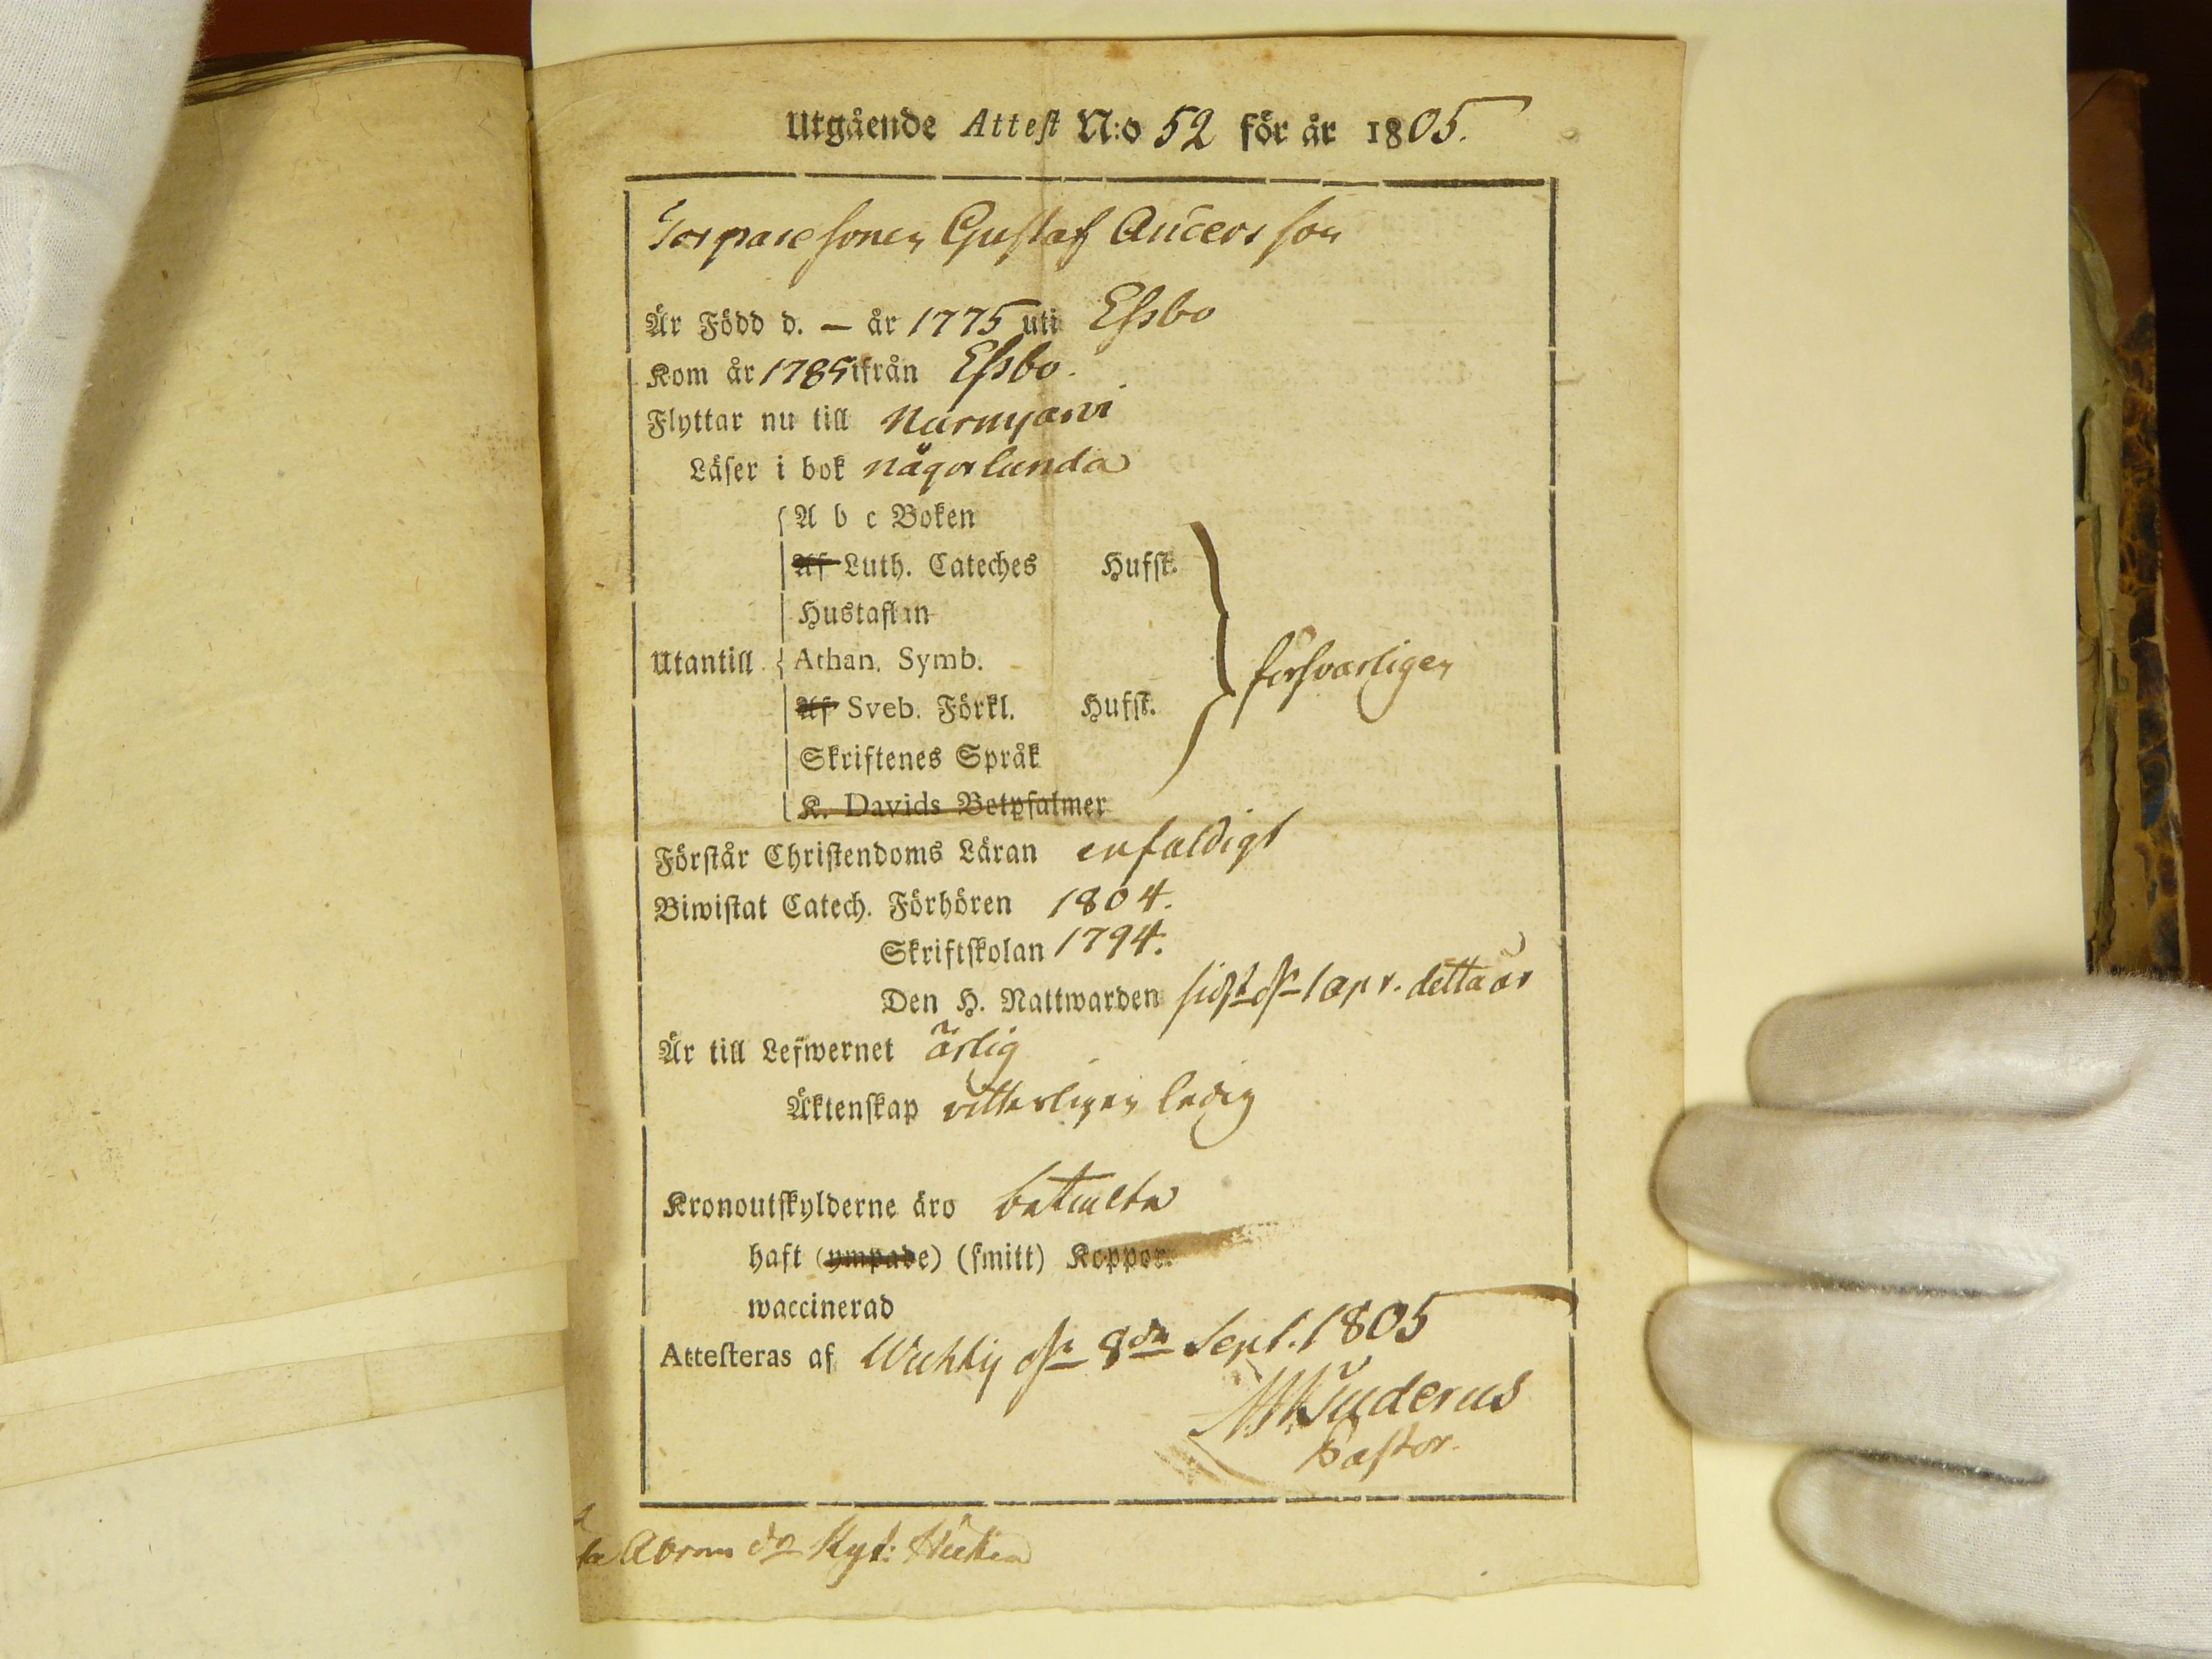 Utgående Attest N:o 52 för år 1805.
Torparesonen Gustaf Andersson
Är Född d. — år 1775 uti Esbo
Kom år 1785 ifrån Esbo.
Flyttar nu till Nurmjärvi
Läser i bok någorlunda
A b c Boken
Af Luth. Cateches Hufst.
Hustaflan
Utantill Athan. Symb. försvarligen
Af Sveb. Förkl. Hufst.
Skriftenes Språk
K. Davids Botpsalmer
Förstår Christendoms Läran enfaldigt
Biwistat Catech. Förhören 1804.
Skriftskolan 1794.
Den H. Nattwarden sidst d. 1 apr. detta år
Är till Lefwernet ärlig
Äktenskap vitterligen ledig
Kronoutskylderne äro betalta
haft (ympade) (smitt) Koppor.
waccinerad
Attesteras af Wichtis d. 8de Sept. 1805
Pastor.